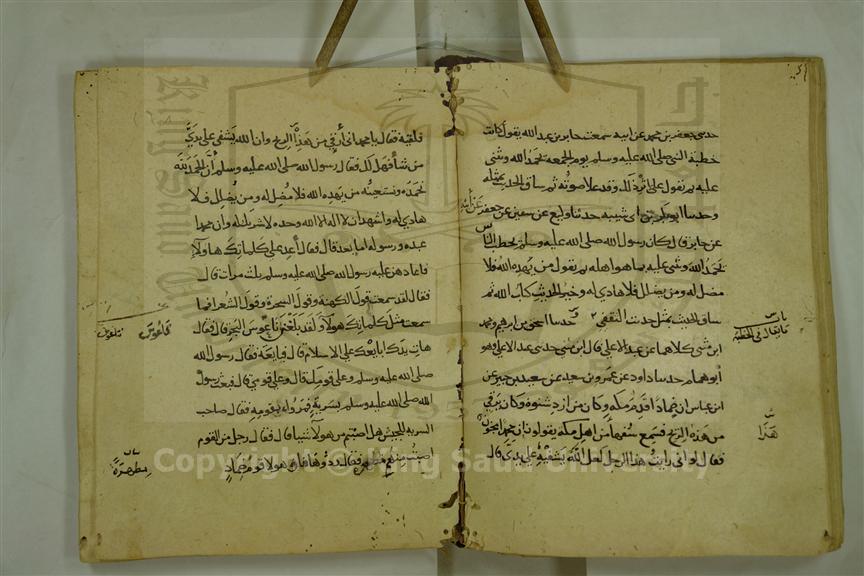 حدثني جعفر بن محمد عن ابيه سمعت جابر بن عبد الله يقول كانت
خطبة النبي صلى الله عليه وسلم يوم الجمعه يحمد الله ويثني
عليه ثم يقول على اثر ذلك وقد علا صوته ثم ساق الحديث بمثله
وحدثنا ابو بكر بن ابي شيبه حدثنا وكيع عن سفين عن جعفر عن ابيه
عن جابر قال كان رسول الله صلى الله عليه وسلم يخطب الناس
يحمد الله ويثني عليه بما هو اهله ثم يقول من يهده الله فلا
مضل له ومن يضلل فلا هادي له وخير الحديث كتاب الله ثم
ساق الحديث بمثل حديث الثقفي وحدثنا اسحق بن ابرهيم ومحمد
ابن مثنى كلاهما عن عبد الاعلى قال ابن مثنى حدثني عبد الاعلى وهو
ابو همام حدثنا داود عن عمرو بن سعيد عن سعيد بن جبير عن
ابن عباس ان ضمادا قدم مكه وكان من ازد شنوة وكان يرقي
من هذه الريح فسمع سفهاء من اهل مكه يقولون ان محمدا مجنون
فقال لو اني رايت هذا الرجل لعل الله يشفيه على يدي قال
باب
ما يقال في الخطبة
هذا
فلقيه فقال يا محمد اني ارقي من هذا الريح وان الله يشفي على يدي
من شا فهل لك فقال رسول الله صلى الله عليه وسلم ان الحمد لله
نحمده ونستعينه من يهده الله فلا مضل له ومن يضلل فلا
هادي له واشهد ان لا اله الا الله وحده لا شريك له وان محمدا
عبده ورسوله اما بعد قال فقال اعد على كلماتك هاولا
فاعادهن عليه رسول الله صلى الله عليه وسلم ثلث مرات قال
فقال لقد سمعت قول الكهنة وقول السحرة وقول الشعرا فما
سمعت مثل كلماتك هولا ولقد بلغن ناعوس البحر قال فقال
هات يدك ابايعك على الاسلام قال فبايعه فقال رسول الله
صلى الله عليه وسلم وعلى قومك قال وعلى قومي قال فبعث رسول
الله صلى الله عليه وسلم سرية فمروا بقومه فقال صاحب
السريه للجيش هل اصبتم من هولا شيا قال فقال رجل من القوم
اصبت منهم مطهره فقال ردوها فان هولا قوم ضماد
قاموس
مطهرة
Copyright © King Saud University